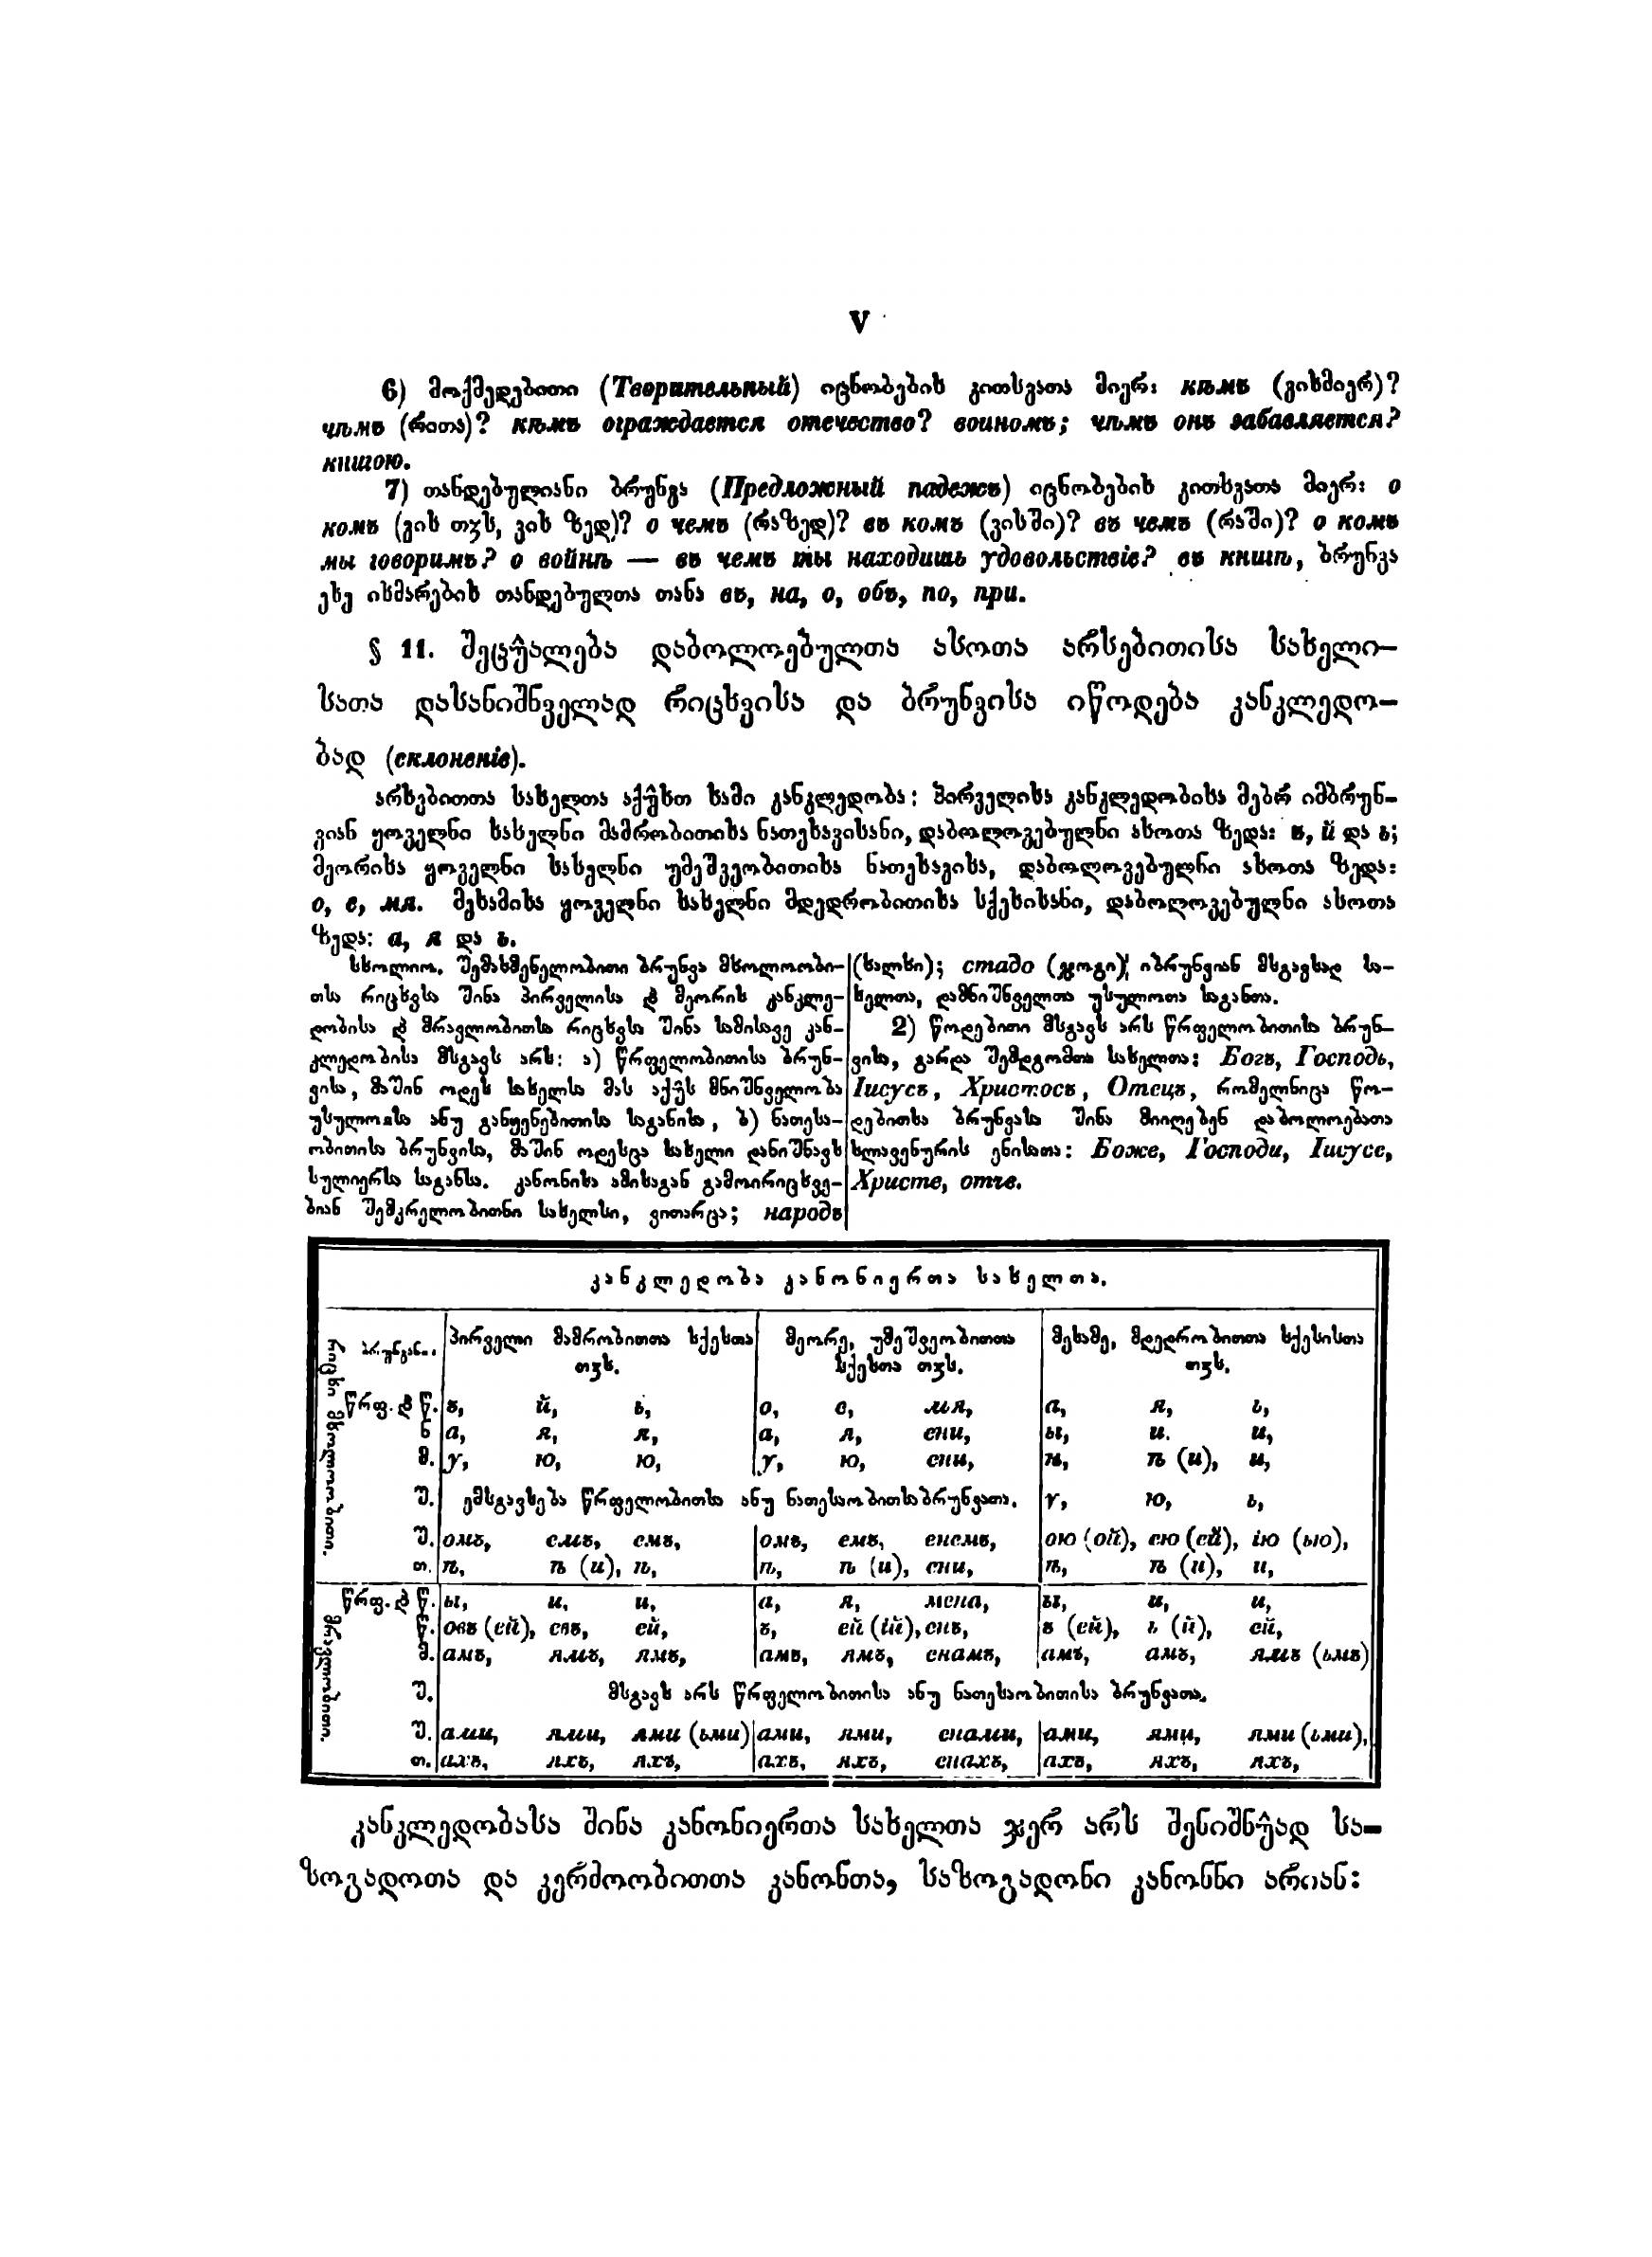 V
6) მოქმედებითი (Творительный) იცნობების კითხვათა მიერ: кѣмъ (ვისმიერ)?
чѣмъ (რითა)? кѣмъ ограждается отечество? воиномъ; чѣмъ онъ забавляется?
книгою.
7) თანდებულიანი ბრუნვა (Предложный падежъ) იცნობების კითხვათა მიერ: о
комъ (ვის თჳს, ვის ზედ)? о чемъ (რაზედ)? въ комъ (ვისში)? въ чемъ (რაში)? о комъ
мы говоримъ? о войнѣ — въ чемъ ты находишь удовольствіе? въ книгѣ, ბრუნვა
ესე იხმარების თანდებულთა თანა въ, на, о, объ, по, при.
§ 11. შეცჳალება დაბოლოებულთა ასოთა არსებითისა სახელი-
სათა დასანიშნველად რიცხვისა და ბრუნვისა იწოდება კანკლედო-
ბად (склоненіе).
არსებითთა სახელთა აქჳსთ სამი კანკლედობა: პირველისა კანკლედობისა მებრ იმბრუნ-
ვიან ყოველნი სახელნი მამრობითისა ნათესავისანი, დაბოლოვებულნი ასოთა ზედა: ъ, й და ь;
მეორისა ყოველნი სახელნი უმეშვეობითისა ნათესავისა, დაბოლოვებულნი ასოთა ზედა:
о, е, мя. მესამისა ყოველნი სახელნი მდედრობითისა სქესისანი, დაბოლოვებულნი ასოთა
ზედა: а, я და ь.
სხოლიო. შემასმენელობითი ბრუნვა მხოლოობი-
თსა რიცხვსა შინა პირველისა ⁊ მეორის კანკლე-
დობისა ⁊ მრავლობითსა რიცხვსა შინა სამისავე კან-
კლედობისა მსგავს არს: ა) წრფელობითისა ბრუნ-
ვისა, მაშინ ოდეს სახელსა მას აქჳს მნიშნველობა
უსულოსა ანუ განყენებითისა საგანისა, ბ) ნათესა-
ობითისა ბრუნვისა, მაშინ ოდესცა სახელი დანიშნავს
სულიერსა საგანსა. კანონისა ამისაგან გამოირიცხვე-
ბიან შემკრელობითნი სახელსი, ვითარცა; народъ
(ხალხი); стадо (ჯოგი); იბრუნვიან მსგავსად სა-
ხელთა, დამნიშნველთა უსულოთა საგანთა.
2) წოდებითი მსგავს არს წრფელობითისა ბრუნ-
ვისა, გარდა შემდგომთა სახელთა: Богъ, Господь,
Іисусъ, Христосъ, Отецъ, რომელნიცა წო-
დებითსა ბრუნვასა შინა მიიღებენ დაბოლოებათა
სლავენურის ენისათა: Боже, Господи, Іисусе,
Христе, отче.
კანკლედობა კანონიერთა სახელთა.
რიცხი მხოლოობითი.
ბრუნვანი. პირველი მამრობითთა სქესთა თჳს. მეორე, უმეშვეობითთა სქესთა თჳს. მესამე, მდედრობითთა სქესისთა თჳს.
წრფ. ⁊ წ. ъ, й, ь, о, е, мя, а, я, ь,
ნ а, я, я, а, я, ени, ы, и. и,
მ. у, ю, ю, у, ю, ени, ѣ, ѣ (и), и,
შ. ემსგავსება წრფელობითსა ანუ ნათესაობითსა ბრუნვათა. у, ю, ь,
შ. омъ, емъ, емъ, омъ, емъ, енемъ, ою (ой), ею (ей), ію (ью),
თ. ѣ, ѣ (и), ѣ, ѣ, ѣ (и), ени, ѣ, ѣ (и), и,
მრავლობითი.
წრფ. ⁊ წ. ы, и, и, а, я, мена, ы, и, и,
წ. овъ (ей), евъ, ей, ъ, ей (ій), енъ, ъ (ей), ь (й), ей,
მ. амъ, ямъ, ямъ, амъ, ямъ, енамъ, амъ, амъ, ямъ (ьмъ)
შ. მსგავს არს წრფელობითისა ანუ ნათესაობითისა ბრუნვათა.
შ. ами, ями, ями (ьми) ами, ями, енами, ами, ями, ями (ьми),
თ. ахъ, яхъ, яхъ, ахъ, яхъ, енахъ, ахъ, яхъ, яхъ,
კანკლედობასა შინა კანონიერთა სახელთა ჯერ არს შენიშნჳად სა-
ზოგადოთა და კერძოობითთა კანონთა, საზოგადონი კანონნი არიან: